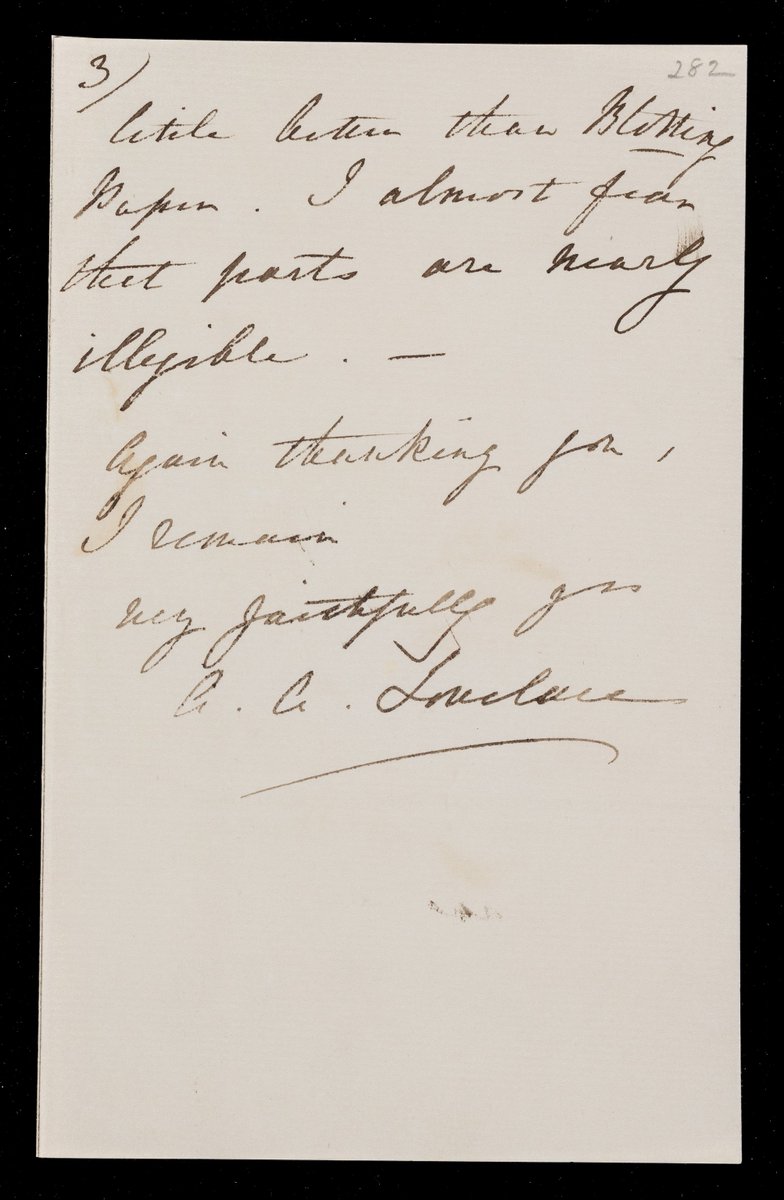 3)
282
little better than Blotting
Paper. I almost fear
that parts are nearly
illegible. —
Again thanking you,
I remain
very faithfully yrs
A. A. Lovelace